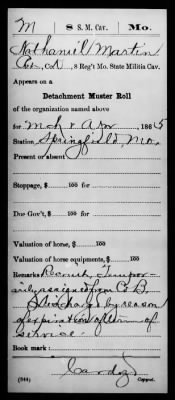 M 8 S.M. Cav. Mo.
Nathaniel Martin
Co. , 8 Reg't Mo. State Militia Cav.
Appears on a
Detachment Muster Roll
of the organization named above
for Mch & Apr, 1865
Station Springfield, Mo.
Present or absent
Stoppage, $ 100 for
Due Gov't, $ 100 for
Valuation of horse, $ 100
Valuation of horse equipments, $ 100
Remarks Recruit, Tempor-
arily assigned from Co B.
Discharged by reason
of expiration of term of
service.
Book mark:
(344) Cardozo Copyist.